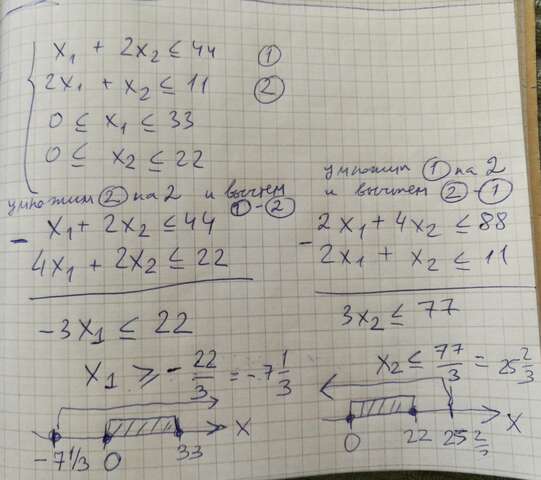 x₁ + 2x₂ ≤ 44 ①
2x₁ + x₂ ≤ 11 ②
0 ≤ x₁ ≤ 33
0 ≤ x₂ ≤ 22
умножим ② на 2 и вычтем
① - ②
- x₁ + 2x₂ ≤ 44
4x₁ + 2x₂ ≤ 22
-3x₁ ≤ 22
x₁ ≥ -22/3 = -7 1/3
-7 1/3 0 33 x
умножим ① на 2
и вычтем ② - ①
- 2x₁ + 4x₂ ≤ 88
2x₁ + x₂ ≤ 11
3x₂ ≤ 77
x₂ ≤ 77/3 = 25 2/3
0 22 25 2/3 x